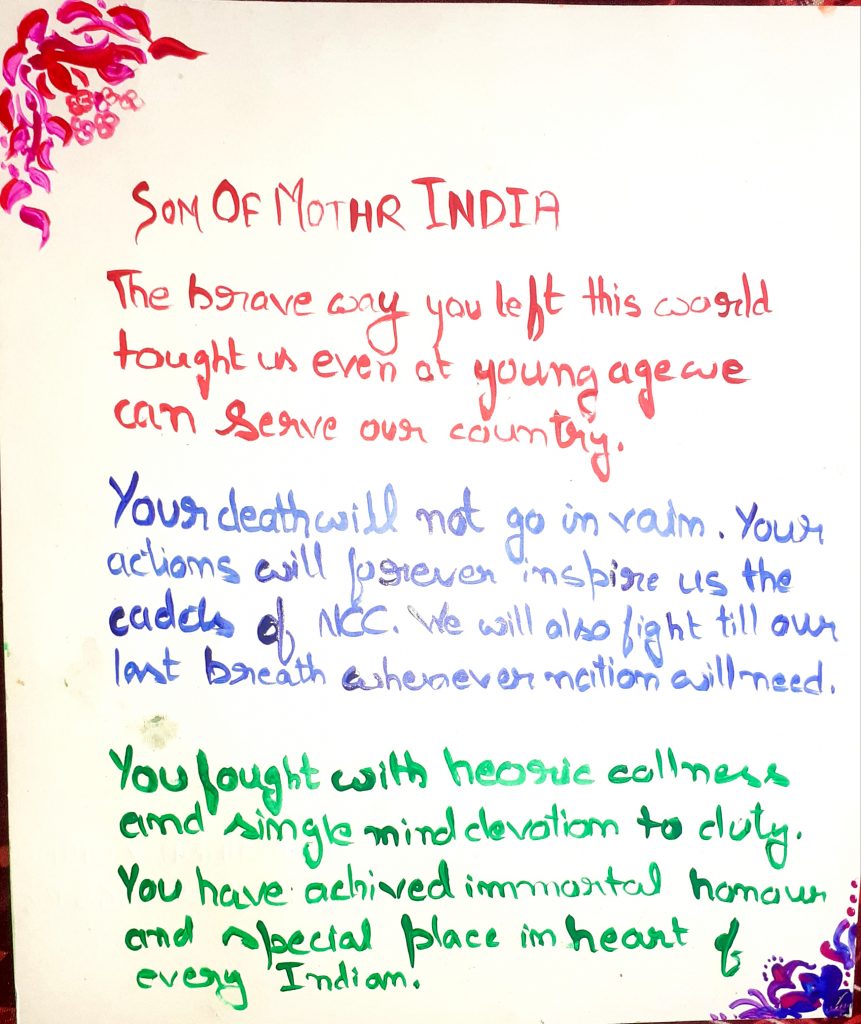 SON OF MOTHR INDIA
The brave way you left this world
tought us even at young age we
can serve our country.
Your death will not go in vain. Your
actions will forever inspire us the
cadds of NCC. We will also fight till our
last breath whenever nation will need.
You fought with heoric callness
and single mind devotion to duty.
You have achived immortal honour
and special place in heart of
every Indian.